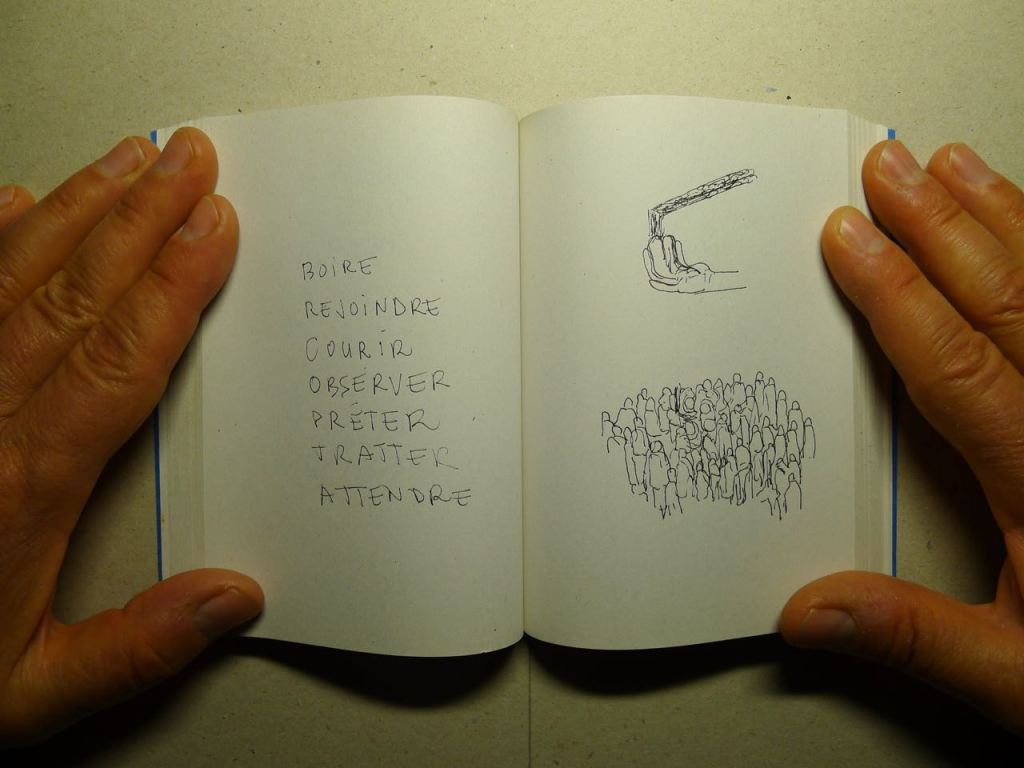 BOIRE
REJOINDRE
COURIR
OBSERVER
PRÉTER
TRAITER
ATTENDRE